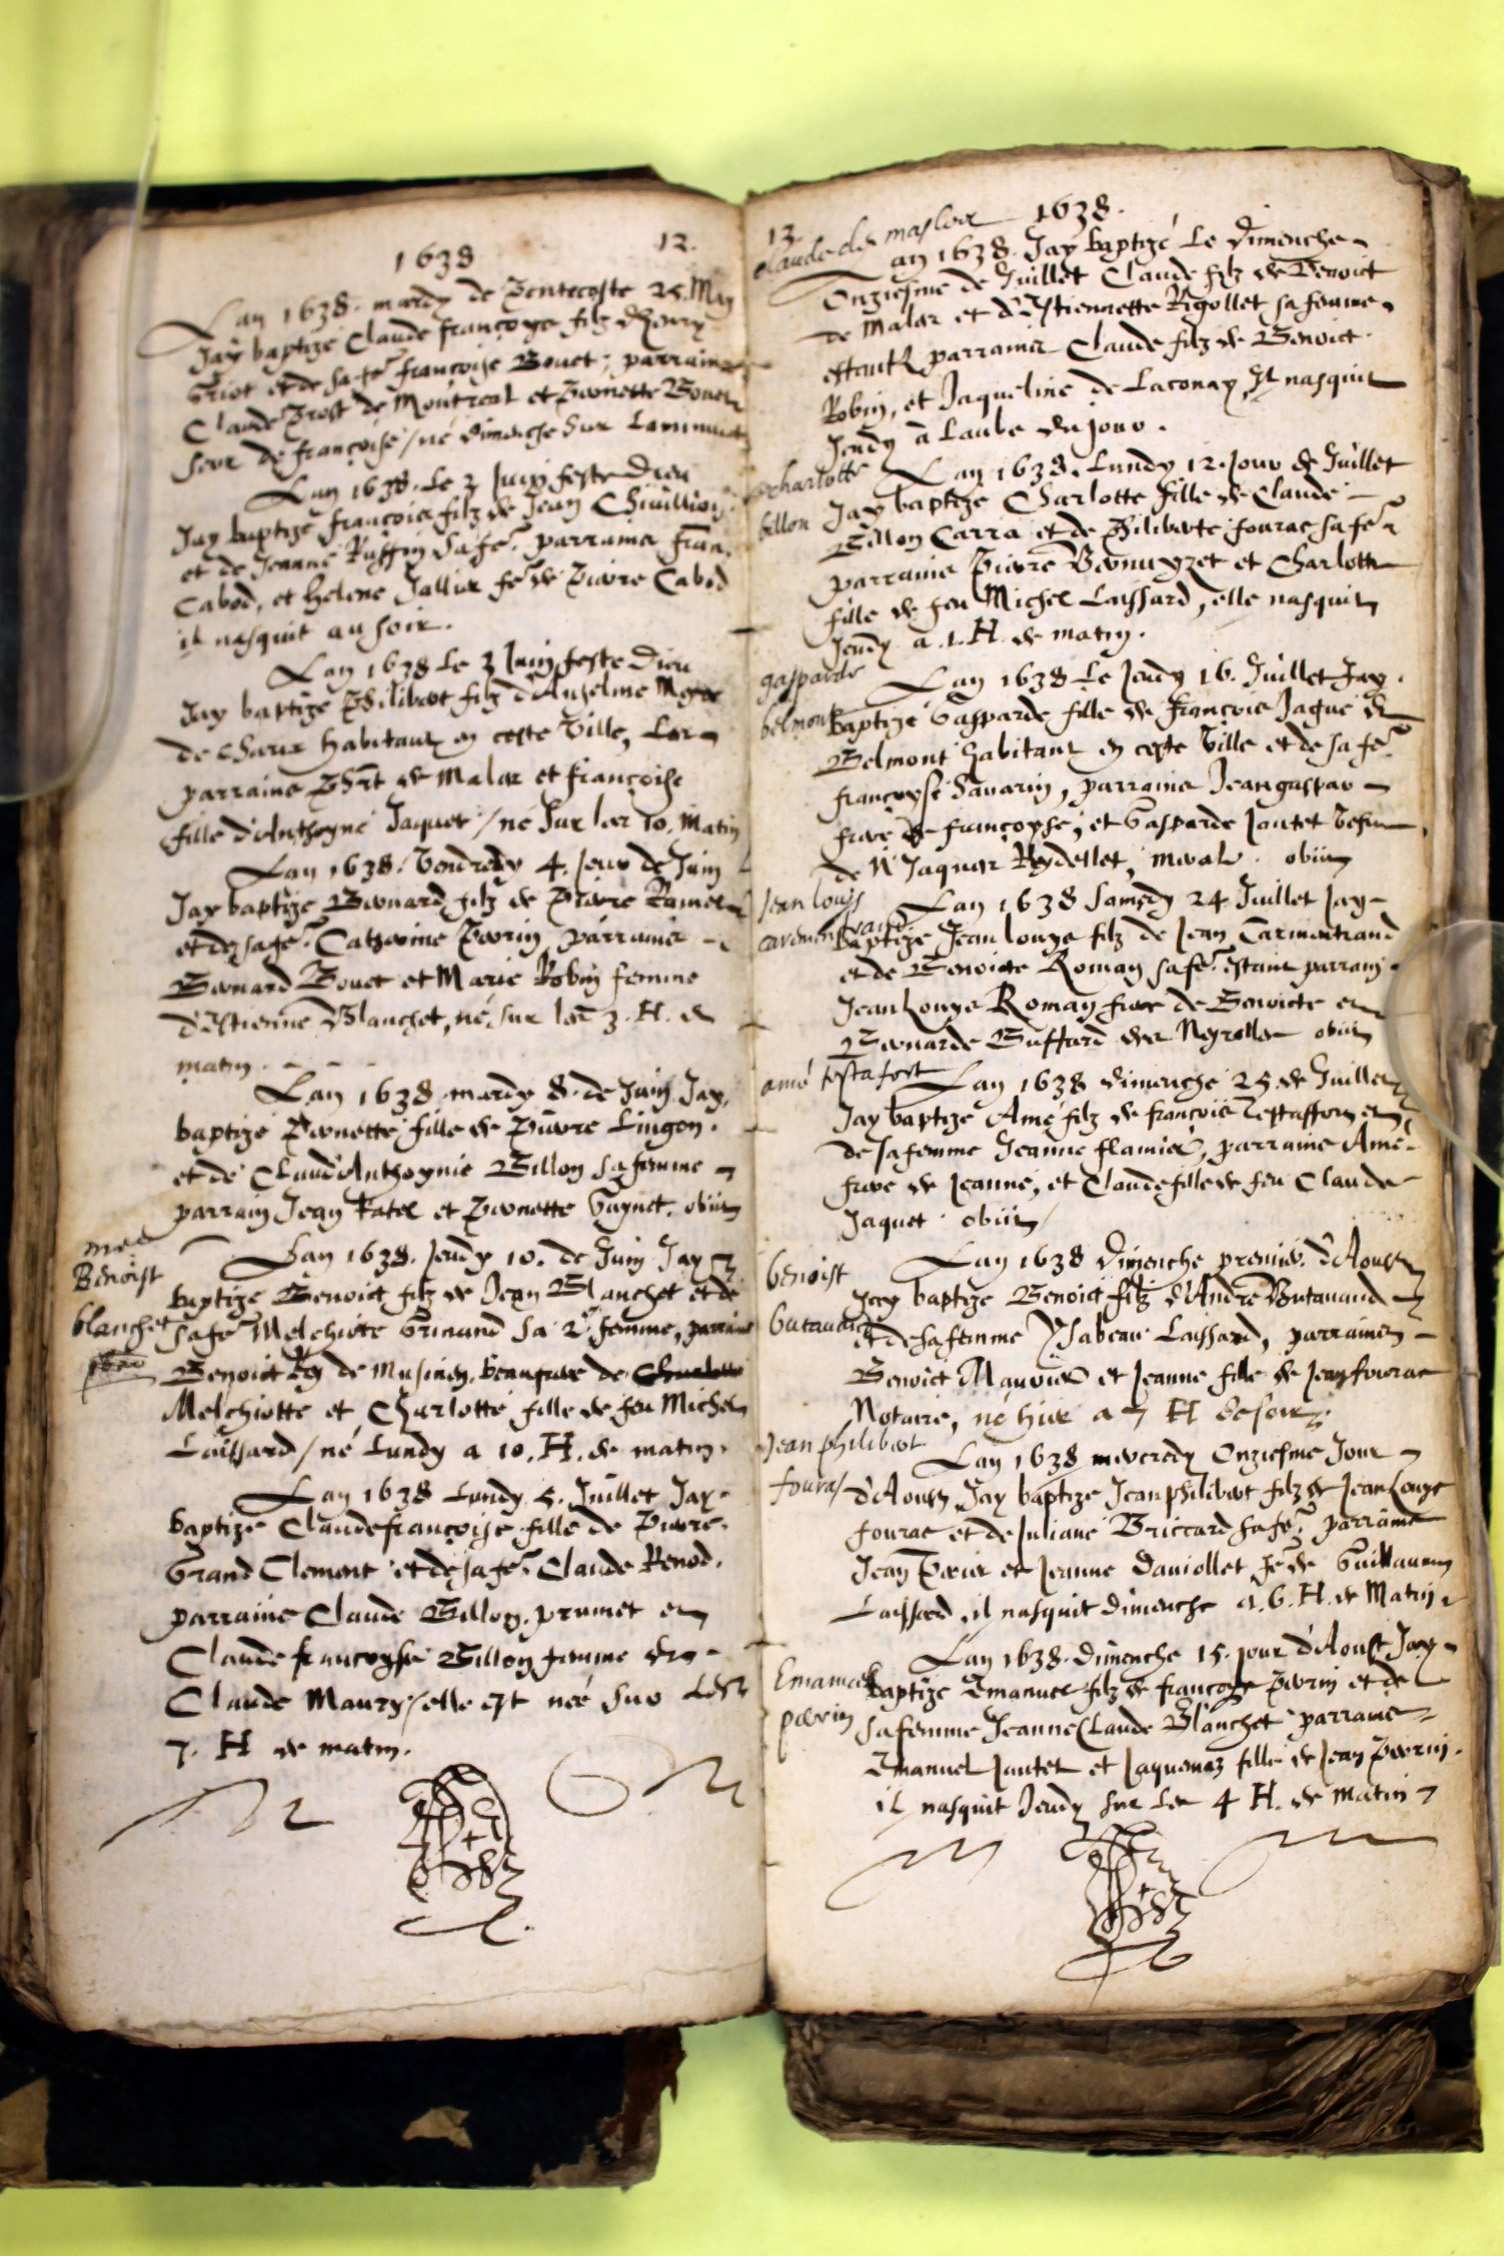 1638 12.
Lan 1638. mardy de Pentecoste 25. May
Jay baptizé Claude françoys filz dhenry
Griot et de sa fe françoise Bouet, parrains
Claude Prost de Montreal et Pernette Bouet
seur de françoise / né dimenche sur
Lan 1638. Le 3 Juin feste Dieu
Jay baptizé françois filz de Jean
et de Jeanne Ruffin sa fe. parrains fran.
Cabod, et helene Jallier fe de Pierre Cabod
il nasquit au soir.
Lan 1638 Le 3 Juin feste Dieu
Jay baptizé Philibert filz d'Anselme
de habitant en ceste Ville, Les
parrains de Malar et françoise
fille d'Anthoyne Jaquet / né sur les 10. Matin
Lan 1638. Vendredy 4. Jour de Juin
Jay baptizé Bernard filz de Pierre
et de sa fe. Catherine Perrin, parrains
Bernard Bouet et Marie Robin femme
d'Estienne Blanchet, né, sur les 3. H. de
matin.
Lan 1638. mardy 8. de Juin Jay
baptizé Pernette fille de Pierre Lingon.
et de Claud'Anthoynie Billon sa femme
parrain Jean Patel et Pernette Guynet. obiit
Benoist
blanchet
Lan 1638. Jeudy 10. de Juin Jay
baptizé Benoict filz de Jean Blanchet et de
sa fe Melchiotte Grinand sa 2e femme,
Benoict de Musiney, beaufrere de
Melchiotte et Charlotte fille de feu Michel
Laissard / né Lundy a 10. H. de matin.
Lan 1638 Lundy 5. Juillet Jay
baptizé Claudefrançoise fille de Pierre
Grand Clement et de sa fe. Claude Renod.
parrains Claude Billon. prumet et
Claude françoyse Billon femme de
Claude Maury / elle est née sur Les
7. H de matin.
13. 1638.
claude de maslar
Lan 1638. Jay baptizé Le Dimenche
Onziesme de Juillet Claude filz de Benoict
de Malar et d'Estiennette Rigollet sa femme
estantz parrains Claude filz de Benoict
Robin, et Jaqueline de Laconay, Il nasquit
Jeudy à Laube du jour.
charlotte
billon
Lan 1638. Lundy 12. Jour de Juillet
Jay baptizé Charlotte fille de Claude
Billon Carra et de Philiberte fourac sa fe
parrains Pierre et Charlotte
fille de feu Michel Laissard, elle nasquit
Jeudy a .1. H. de matin.
gasparde
belmont
Lan 1638 Le Jeudy 16. Juillet Jay
baptizé Gasparde fille de françois Jaque de
Belmont habitant en ceste Ville et de sa fe
françoyse Savarin, parrains Jeangaspar
frere de françoyse, et Gasparde Jantet
de Me Jaques Reydellet, obiit
Jean louys
carementrand
Lan 1638 Samedy 24 Juillet Jay
baptizé Jean louys filz de Jean Carmentrand
et de Benoicte Roman sa fe. estant parrain
Jean Louys Roman frere de Benoicte et
Bernarde Buffard des Neyrolles obiit
amé testafort
Lan 1638 dimenche 25 de Juillet
Jay baptizé Amé filz de françois Testaffort et
de sa femme Jeanne flamier, parrains Amé
frere de Jeanne, et Claude fille de feu Claude
Jaquet. obiit
benoist
butavand
Lan 1638 Dimenche premier d'Aoust
Jay baptizé Benoict filz d'André Butavand
et de sa femme Ysabeau Laissard, parrains
Benoict Maurier et Jeanne fille de Jean fourac
Notaire, né hier a 7 H de soir.
Jean philibert
fouras
Lan 1638 mercredy Onziesme Jour
d'Aoust Jay baptizé Jeanphilibert filz de Jean Louys
fourac et de Juliane Briccard sa fe. parrains
Jean Perier et Jeanne Daviollet fe de Guillaume
Laissard, il nasquit dimenche a. 6. H. de Matin
Emanuel
perrin
Lan 1638. Dimenche 15. jour d'Aoust Jay
baptizé Emanuel filz de françoys Perrin et de
sa femme Jeanne Claude Blanchet parrains
Emanuel Jantet et Jaquemaz fille de Jean Perrin.
il nasquit Jeudy sur Les 4 H. de Matin